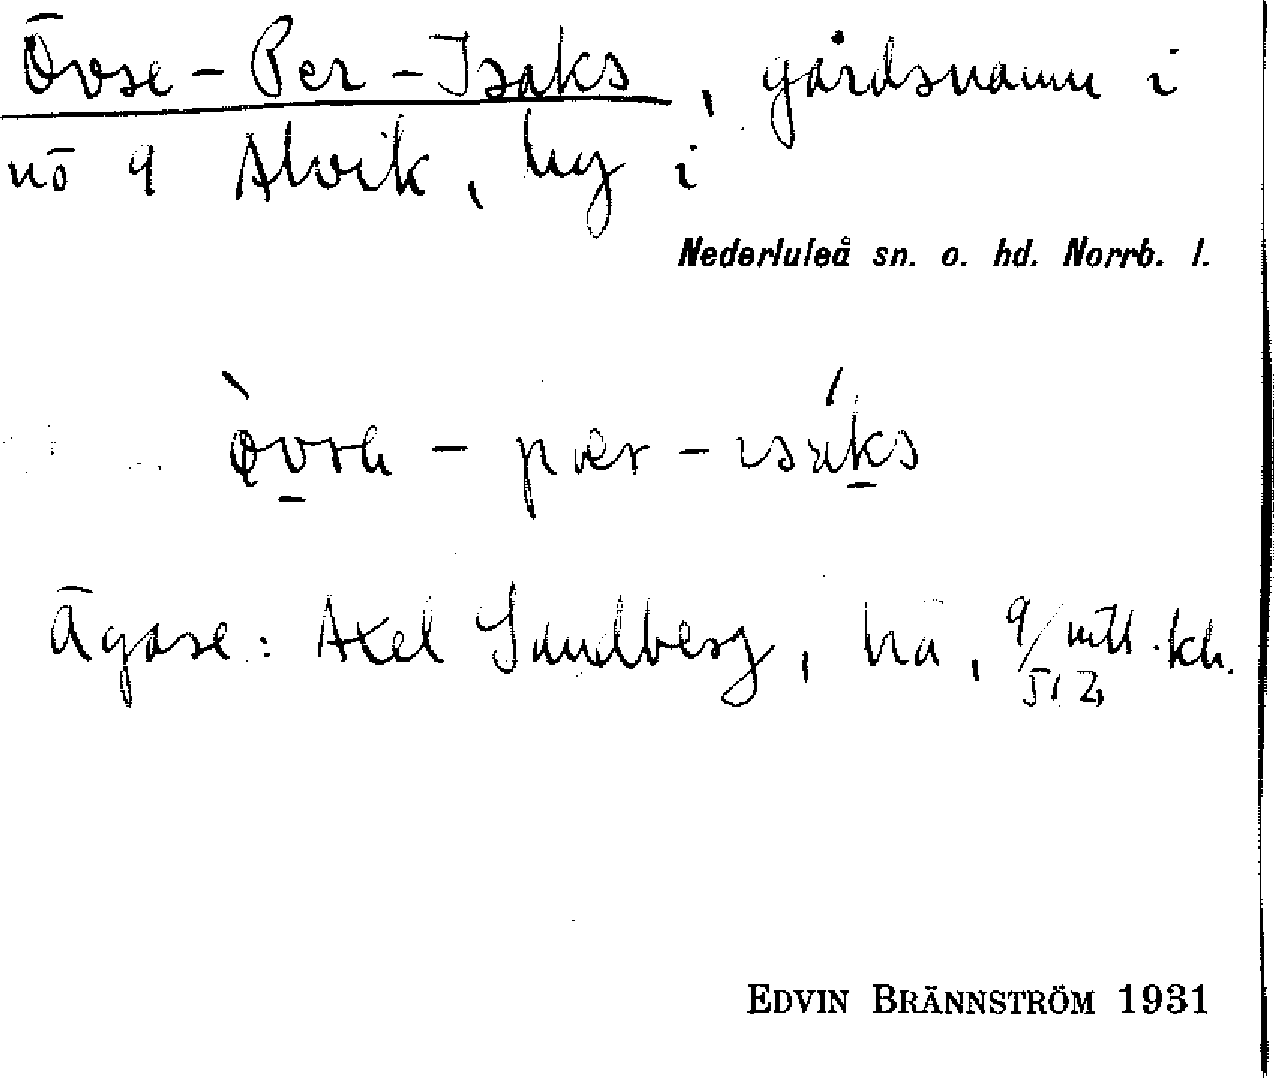 Övre-Per-Isaks, gårdsnamn i
nö 9 Alvik, by i
Nederluleå sn. o. hd. Norrb. l.
övrα-pær-ısáks
Ägare: Axel Sundberg, ha, 9/512 mtl. kh.
EDVIN BRÄNNSTRÖM 1931